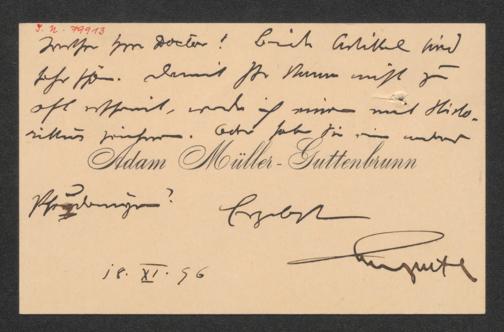 I. N. 79913
Doctor! Beide Artikel sind
sehr schön. Damit Ihr Name nicht zu
oft erscheint, werde ich einen mit
Oder haben Sie ein anderes
Adam Müller-Guttenbrunn
Pseudonym?
Ergebenst
18. XI. 96